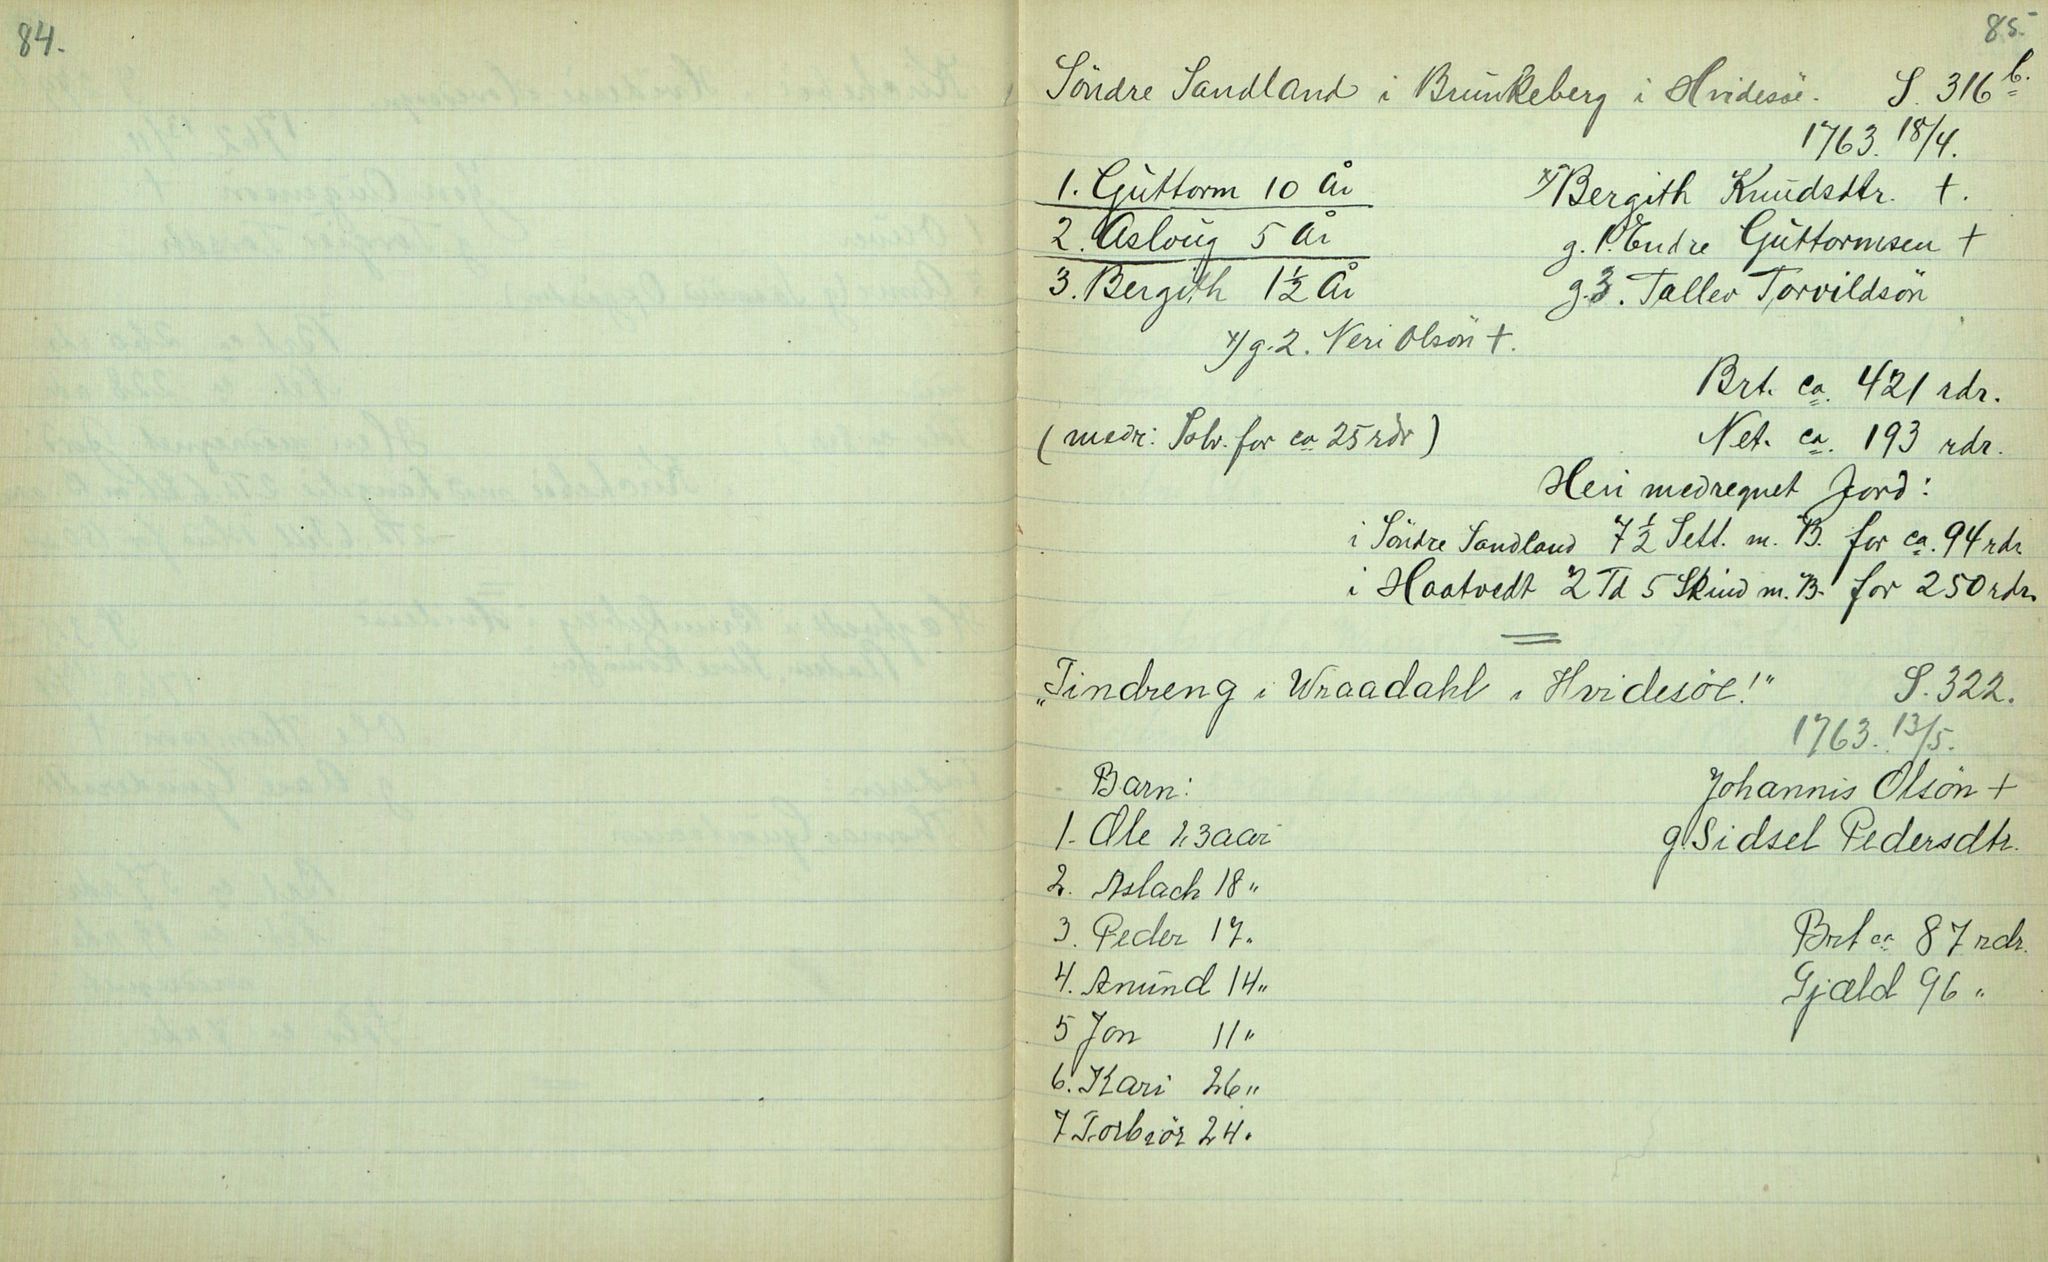 84.
85.
Söndre Sandland i Brunkeberg i Hvidesöe. S. 316 b.
1763. 18/4.
1. Guttorm 10 År x) Bergith Knudsdtr. †.
2. Asloug 5 År g. 1. Endre Guttormsen †
3. Bergith 1½ År g. 3. Tallev Torvildsön
x) g. 2. Neri Olsön †.
Brt. ca. 421 rdr.
(medr: Sølv. for ca 25 rdr) Net. ca. 193 rdr.
Heri medregnet Jord:
i Söndre Sandland 7½ Sett. m. B. for ca. 94 rdr.
i Haatvedt 2 Td 5 Skind m. B. for 250 rdr.
„Tindreng i Wraadahl i Hvidesöe!“ S. 322.
1763. 13/5.
Barn: Johannis Olsön †
1. Ole 23 aar g. Sidsel Pedersdtr.
2. Aslach 18 „
3. Peder 17. Brt ca 87 rdr.
4. Anund 14 „ Gjæld 96 „
5 Jon 11 „
6. Kari 26 „
7 Torbiör 24.